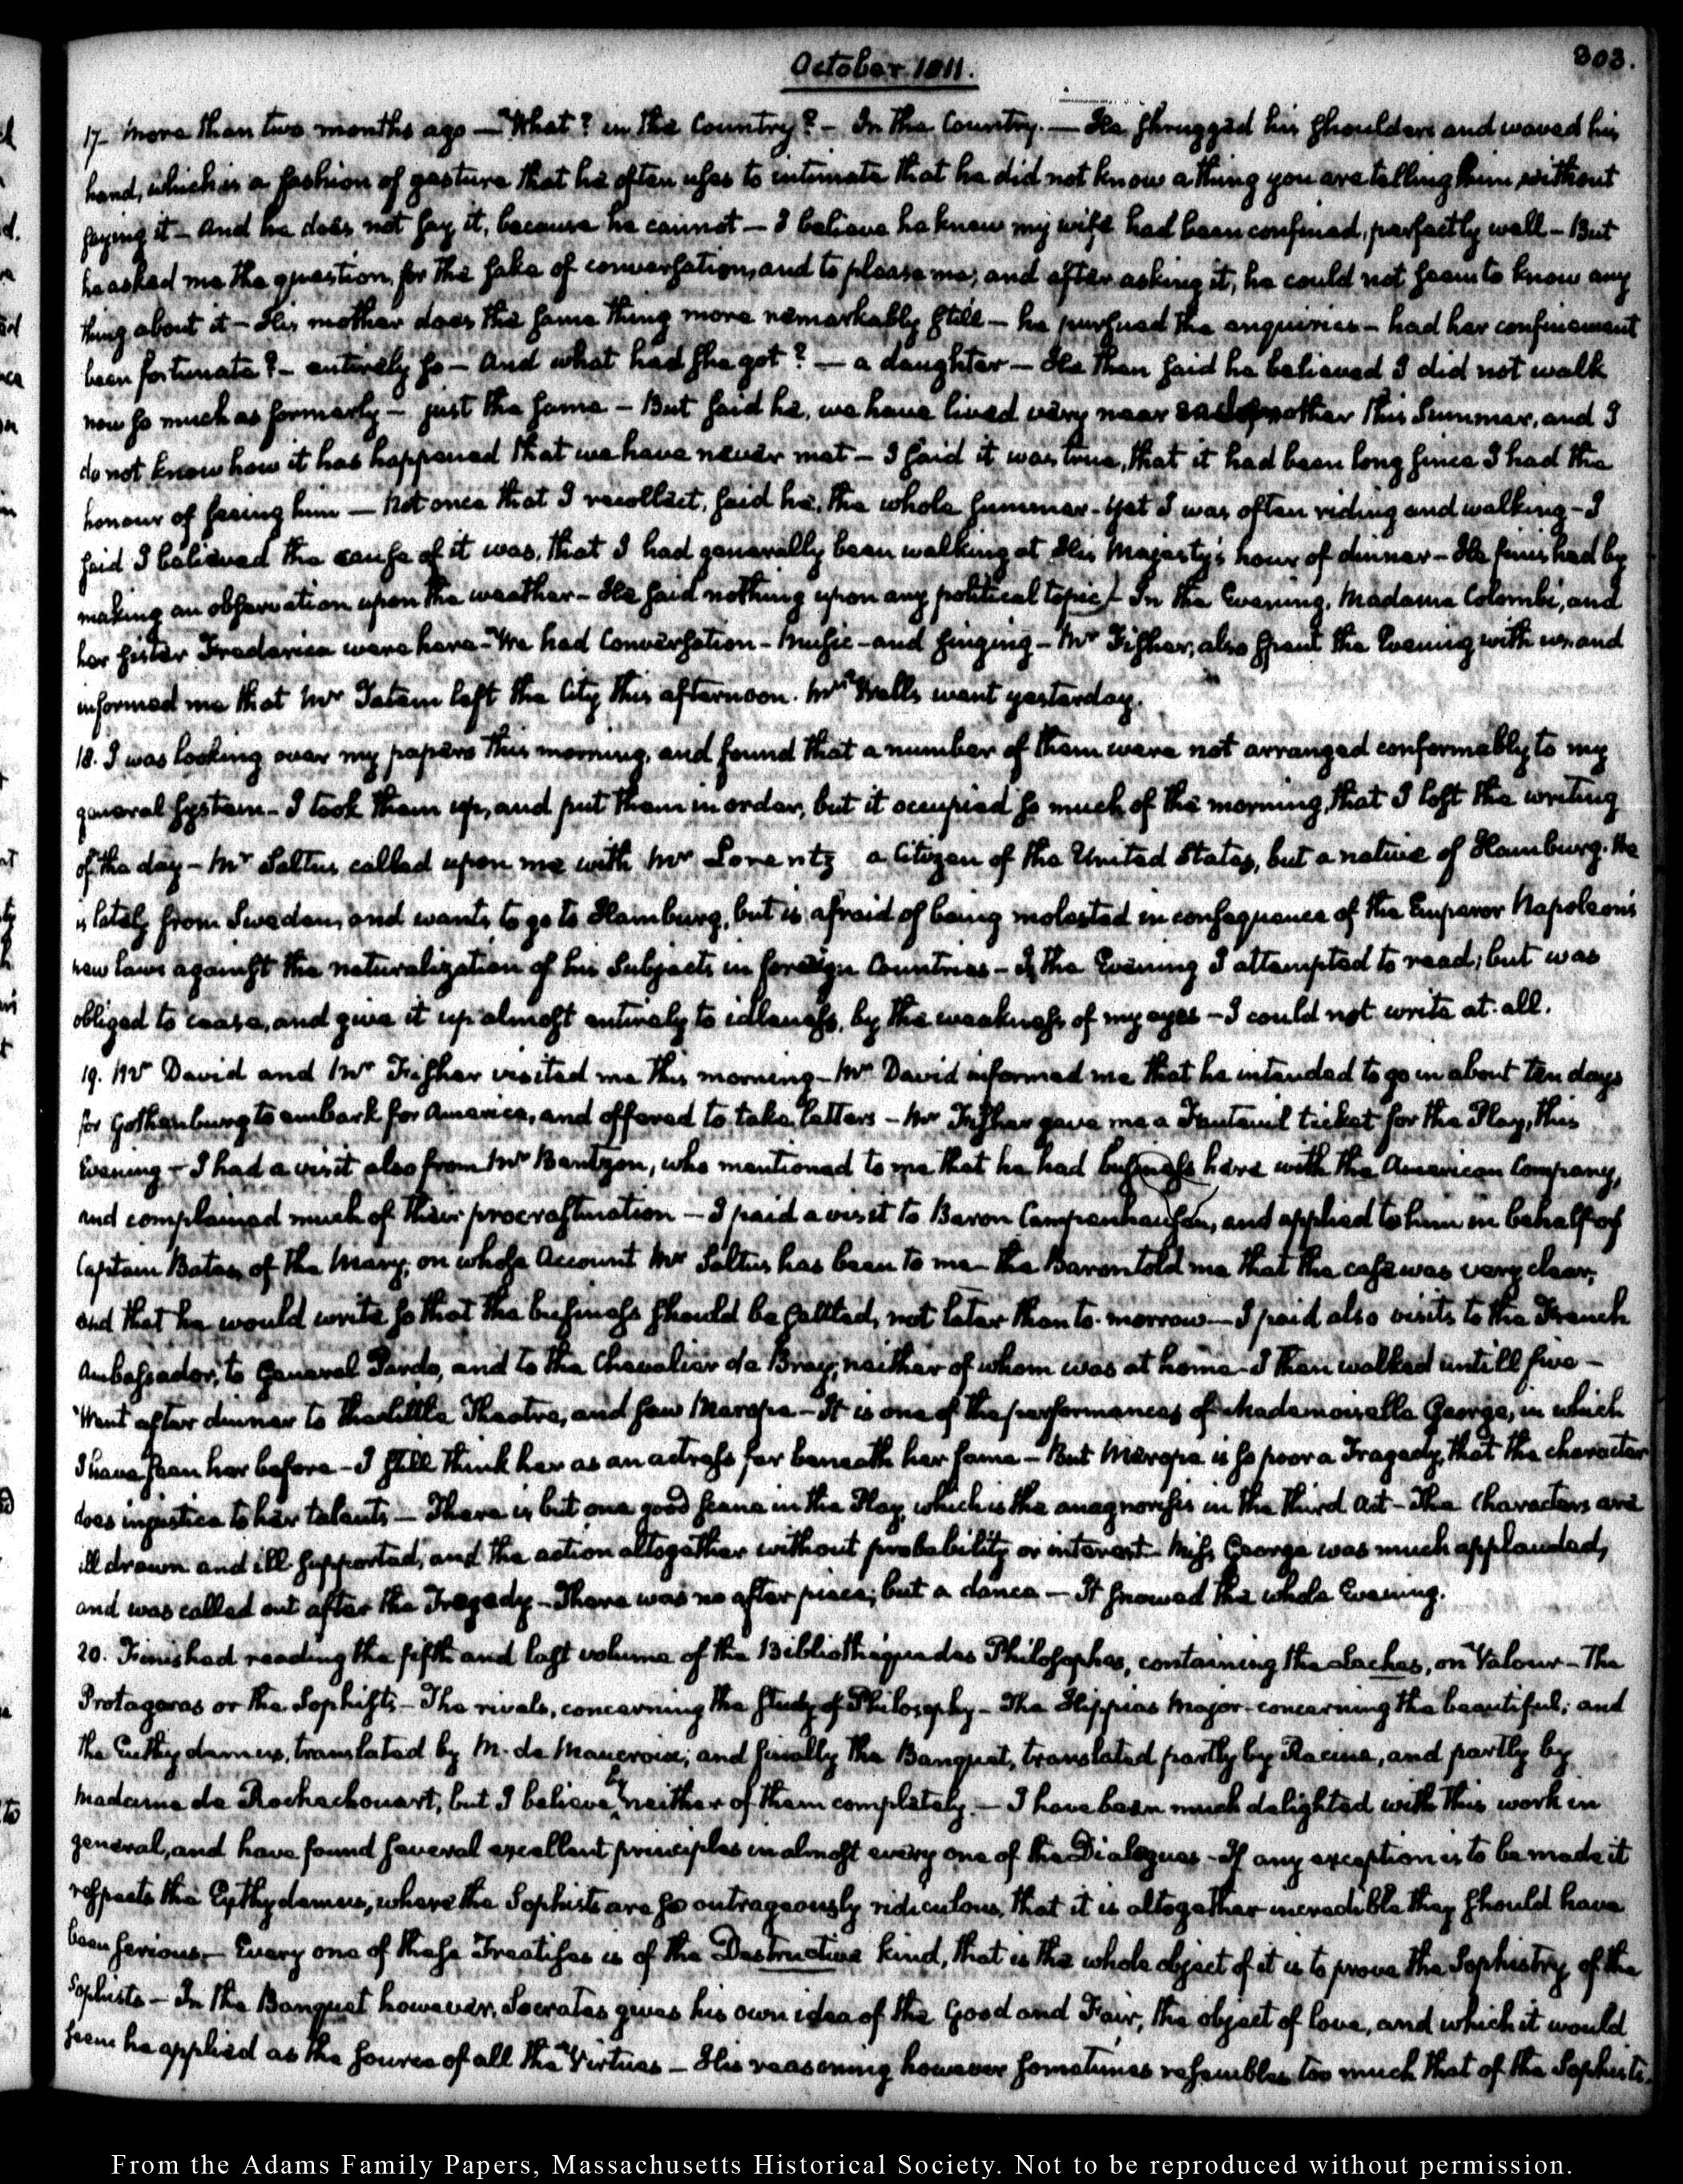 October 1811.
303.
17. more than two months ago — What? in the Country? — In the Country. — He shrugged his shoulders and waved his
hand, which is a fashion of gesture that he often uses to intimate that he did not know a thing you are telling him without
saying it — And he does not say it, because he cannot — I believe he knew my wife had been confined, perfectly well — But
he asked me the question, for the sake of conversation, and to please me; and after asking it, he could not seem to know any
thing about it — His mother does the same thing more remarkably still — he pursued the enquiries — had her confinement
been fortunate? — entirely so — And what had she got? — a daughter — He then said he believed I did not walk
now so much as formerly — just the same — But said he, we have lived very near each other this Summer, and I
do not know how it has happened that we have never met — I said it was true, that it had been long since I had the
honour of seeing him — Not once that I recollect, said he, the whole summer — yet I was often riding and walking — I
said I believed the cause of it was, that I had generally been walking at His Majesty's hour of dinner — He finished by
making an observation upon the weather — He said nothing upon any political topic — In the Evening, Madame Colombi, and
her sister Frederica were here — We had Conversation — Music — and singing — Mr Fisher, also spent the Evening with us, and
informed me that Mr Tatem left the City this afternoon. Mr Wells went yesterday.
18. I was looking over my papers this morning, and found that a number of them were not arranged conformably to my
general system — I took them up, and put them in order, but it occupied so much of the morning, that I lost the writing
of the day — Mr Saltus called upon me with Mr Lorentz a Citizen of the United States, but a native of Hamburg. He
is lately from Sweden, and wants to go to Hamburg, but is afraid of being molested in consequence of the Emperor Napoleon's
new laws against the naturalization of his Subjects in foreign Countries — In the Evening I attempted to read; but was
obliged to cease, and give it up almost entirely to idleness, by the weakness of my eyes — I could not write at all.
19. Mr David and Mr Fisher visited me this morning — Mr David informed me that he intended to go in about ten days
for Gothenburg to embark for America, and offered to take letters — Mr Fisher gave me a Fauteuil ticket for the Play, this
Evening — I had a visit also from Mr Bentzon, who mentioned to me that he had business here with the American Company,
and complained much of their procrastination — I paid a visit to Baron Campenhausen, and applied to him in behalf of
Captain Bates, of the Mary, on whose Account Mr Saltus has been to me — the Baron told me that the case was very clear,
and that he would write so that the business should be settled, not later than to-morrow — I paid also visits to the French
Ambassador, to General Pardo, and to the Chevalier de Bray, neither of whom was at home — I then walked untill five —
Went after dinner to the little Theatre, and saw Merope — It is one of the performances of Mademoiselle George, in which
I have seen her before — I still think her as an actress far beneath her fame — But Merope is so poor a Tragedy, that the character
does injustice to her talents — There is but one good scene in the Play, which is the anagnorisis in the third Act — The Characters are
ill drawn and ill supported, and the action altogether without probability or interest — Miss George was much applauded,
and was called out after the Tragedy — There was no after piece; but a dance — It snowed the whole Evening.
20. Finished reading the fifth and last volume of the Bibliotheque des Philosophes, containing the Laches, on Valour — The
Protagoras or the Sophists — The rivals, concerning the study of Philosophy — The Hippias Major concerning the beautiful; and
the Euthydemus, translated by M. de Maucroix; and finally the Banquet, translated partly by Racine, and partly by
Madame de Rochechouart, but I believe by neither of them completely. — I have been much delighted with this work in
general, and have found several excellent principles in almost every one of the Dialogues — If any exception is to be made it
respects the Euthydemus, where the Sophists are so outrageously ridiculous, that it is altogether incredible they should have
been serious. — Every one of these Treatises is of the Destructive kind, that is the whole object of it is to prove the Sophistry of the
Sophists — In the Banquet however, Socrates gives his own idea of the Good and Fair, the object of love, and which it would
seem he applied as the source of all the Virtues — His reasoning however sometimes resembles too much that of the Sophists.
From the Adams Family Papers, Massachusetts Historical Society. Not to be reproduced without permission.